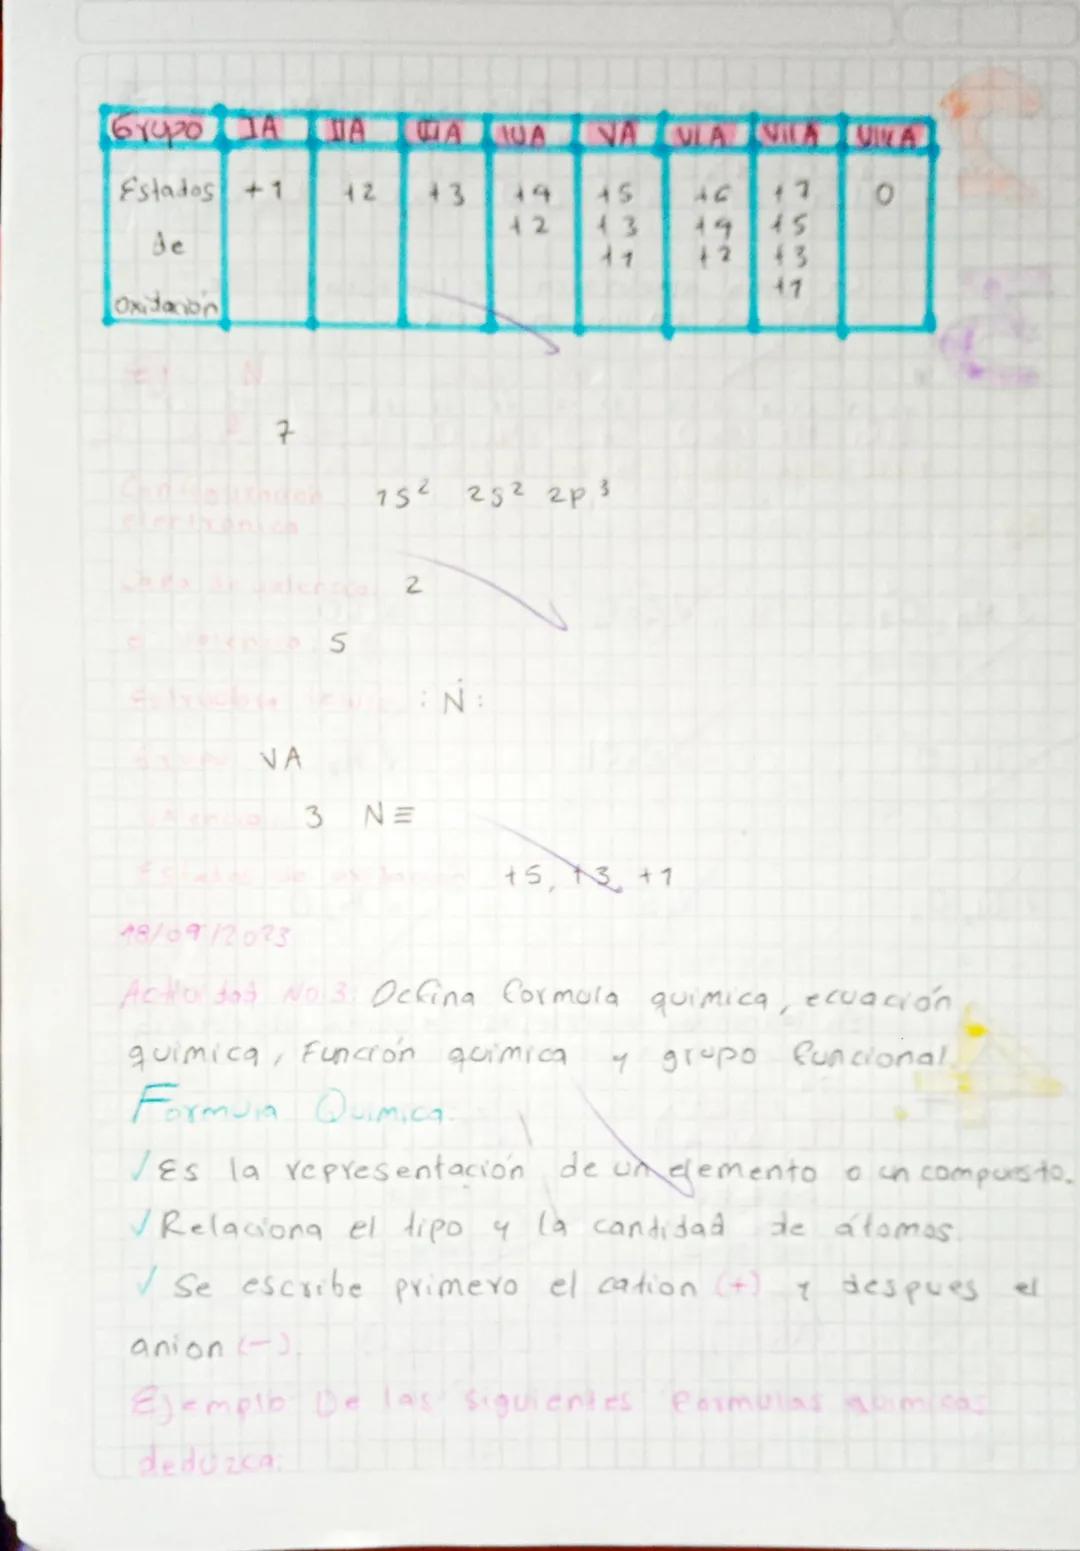 Grupo IA IIA IIIA IVA VA VIA VIIA VIIIA
Estados +1 +2 +3 +4 +5 +6 +7 0
+2 +3 +4 +5
de +1 +2 +3
+1
Oxidación
Ej N
7
Configuración 1s² 2s² 2p³
electrónica
Capa de valencia 2
e valencia 5
Estructura lewis :Ṅ:
Grupo VA
Valencia 3 N≡
Estados de oxidacion +5, +3, +1
18/09/2023
Actividad No 3. Defina formula química, ecuación
quimica, Función quimica y grupo funcional.
Formula Quimica:
✓ Es la representación de un elemento o un compuesto.
✓ Relaciona el tipo y la candidad de átomos.
✓ Se escribe primero el cation (+) y despues el
anion (-).
Ejemplo De las siguientes formulas quimicas
deduzca: